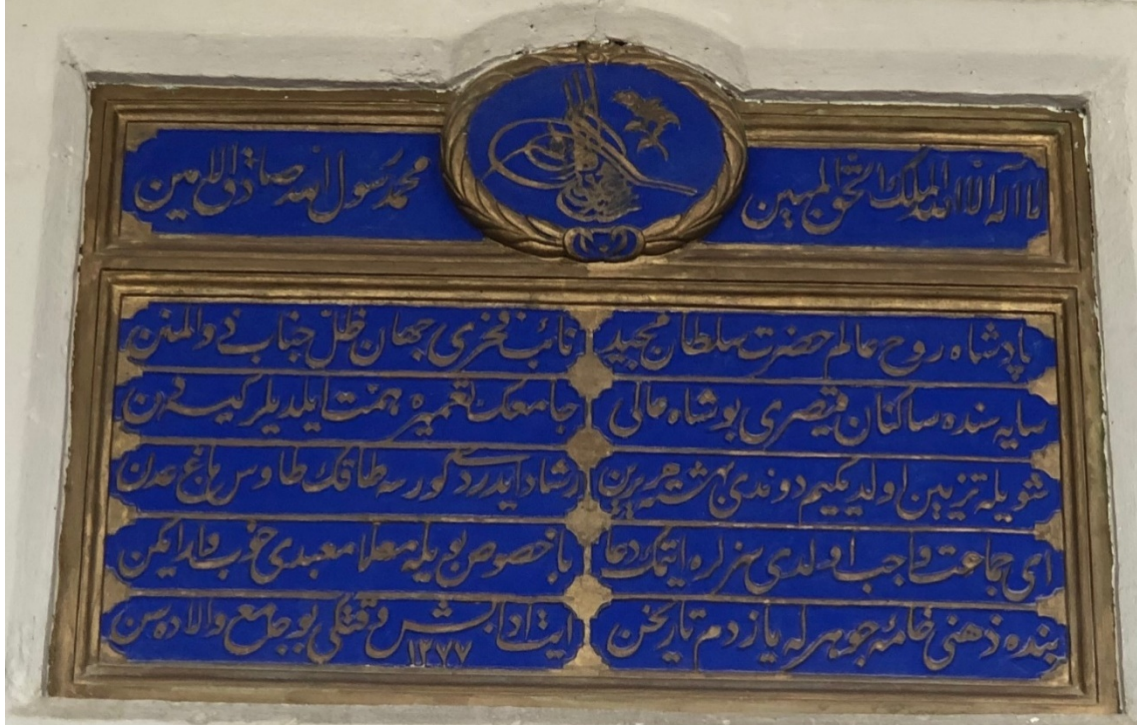 لا اله الا الله الملك الحق المبين
محمد رسول الله صادق الامين
پادشاه روح عالم حضرت سلطان مجيد
نائب فخرى جهان ظل جناب ذو المنن
سايه سنده ساكنان قيصرى بو شاه عالى
جامعك تعميره همت ايلديلر
شويله تزيين اولديكيم دوندى بهشته هر
رشك ايدردى كورسه طاقك طاوس باغ عدن
اى جماعت واجب اولدى سزلره ايتمك دعا
با خصوص بويله معلا معبدى خوب
بنده ذهنى خامۀ جوهرله يازدم تاريخن
ايت ادا بش وقتكى بو جامع والاده سن
١٢٧٧